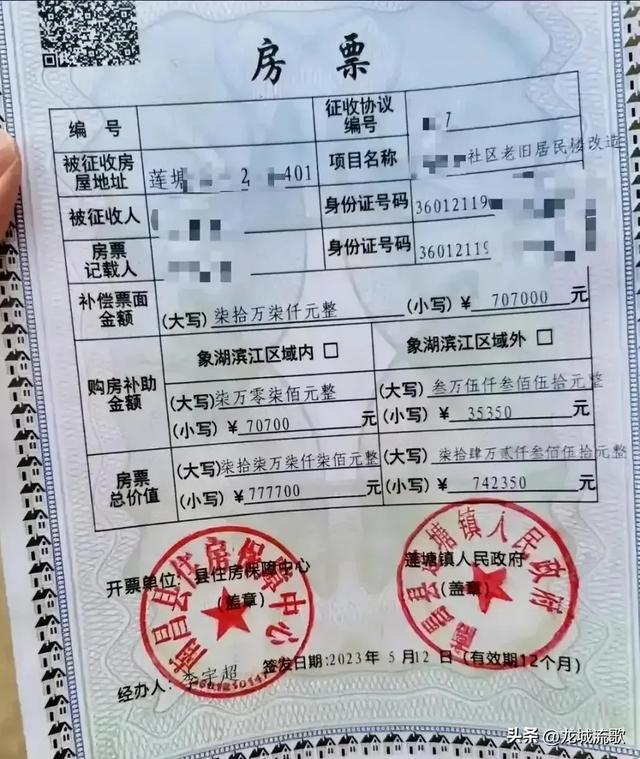 房 票
编 号
征收协议
编号
7
被征收房
屋地址
莲塘 2 401
项目名称
社区老旧居民楼改造
被征收人
身份证号码
36012119
房票
记载人
身份证号码
36012119
补偿票面
金额
(大写) 柒拾万柒仟元整
(小写) ¥ 707000 元
购房补助
金额
象湖滨江区域内 □
象湖滨江区域外 □
(大写) 柒万零柒佰元整
(小写) ¥ 70700 元
(大写) 叁万伍仟叁佰伍拾元整
(小写) ¥ 35350 元
房票
总价值
(大写) 柒拾柒万柒仟柒佰元整
(小写) ¥ 777700 元
(大写) 柒拾肆万贰仟叁佰伍拾元整
(小写) ¥ 742350 元
开票单位: 县住房保障中心
(盖章)
莲塘镇人民政府
(盖章)
南昌县住房保障中心
南昌县莲塘镇人民政府
签发日期: 2023 年 5 月 12 日 (有效期12个月)
经办人: 李宇超
头条 @龙城流歌